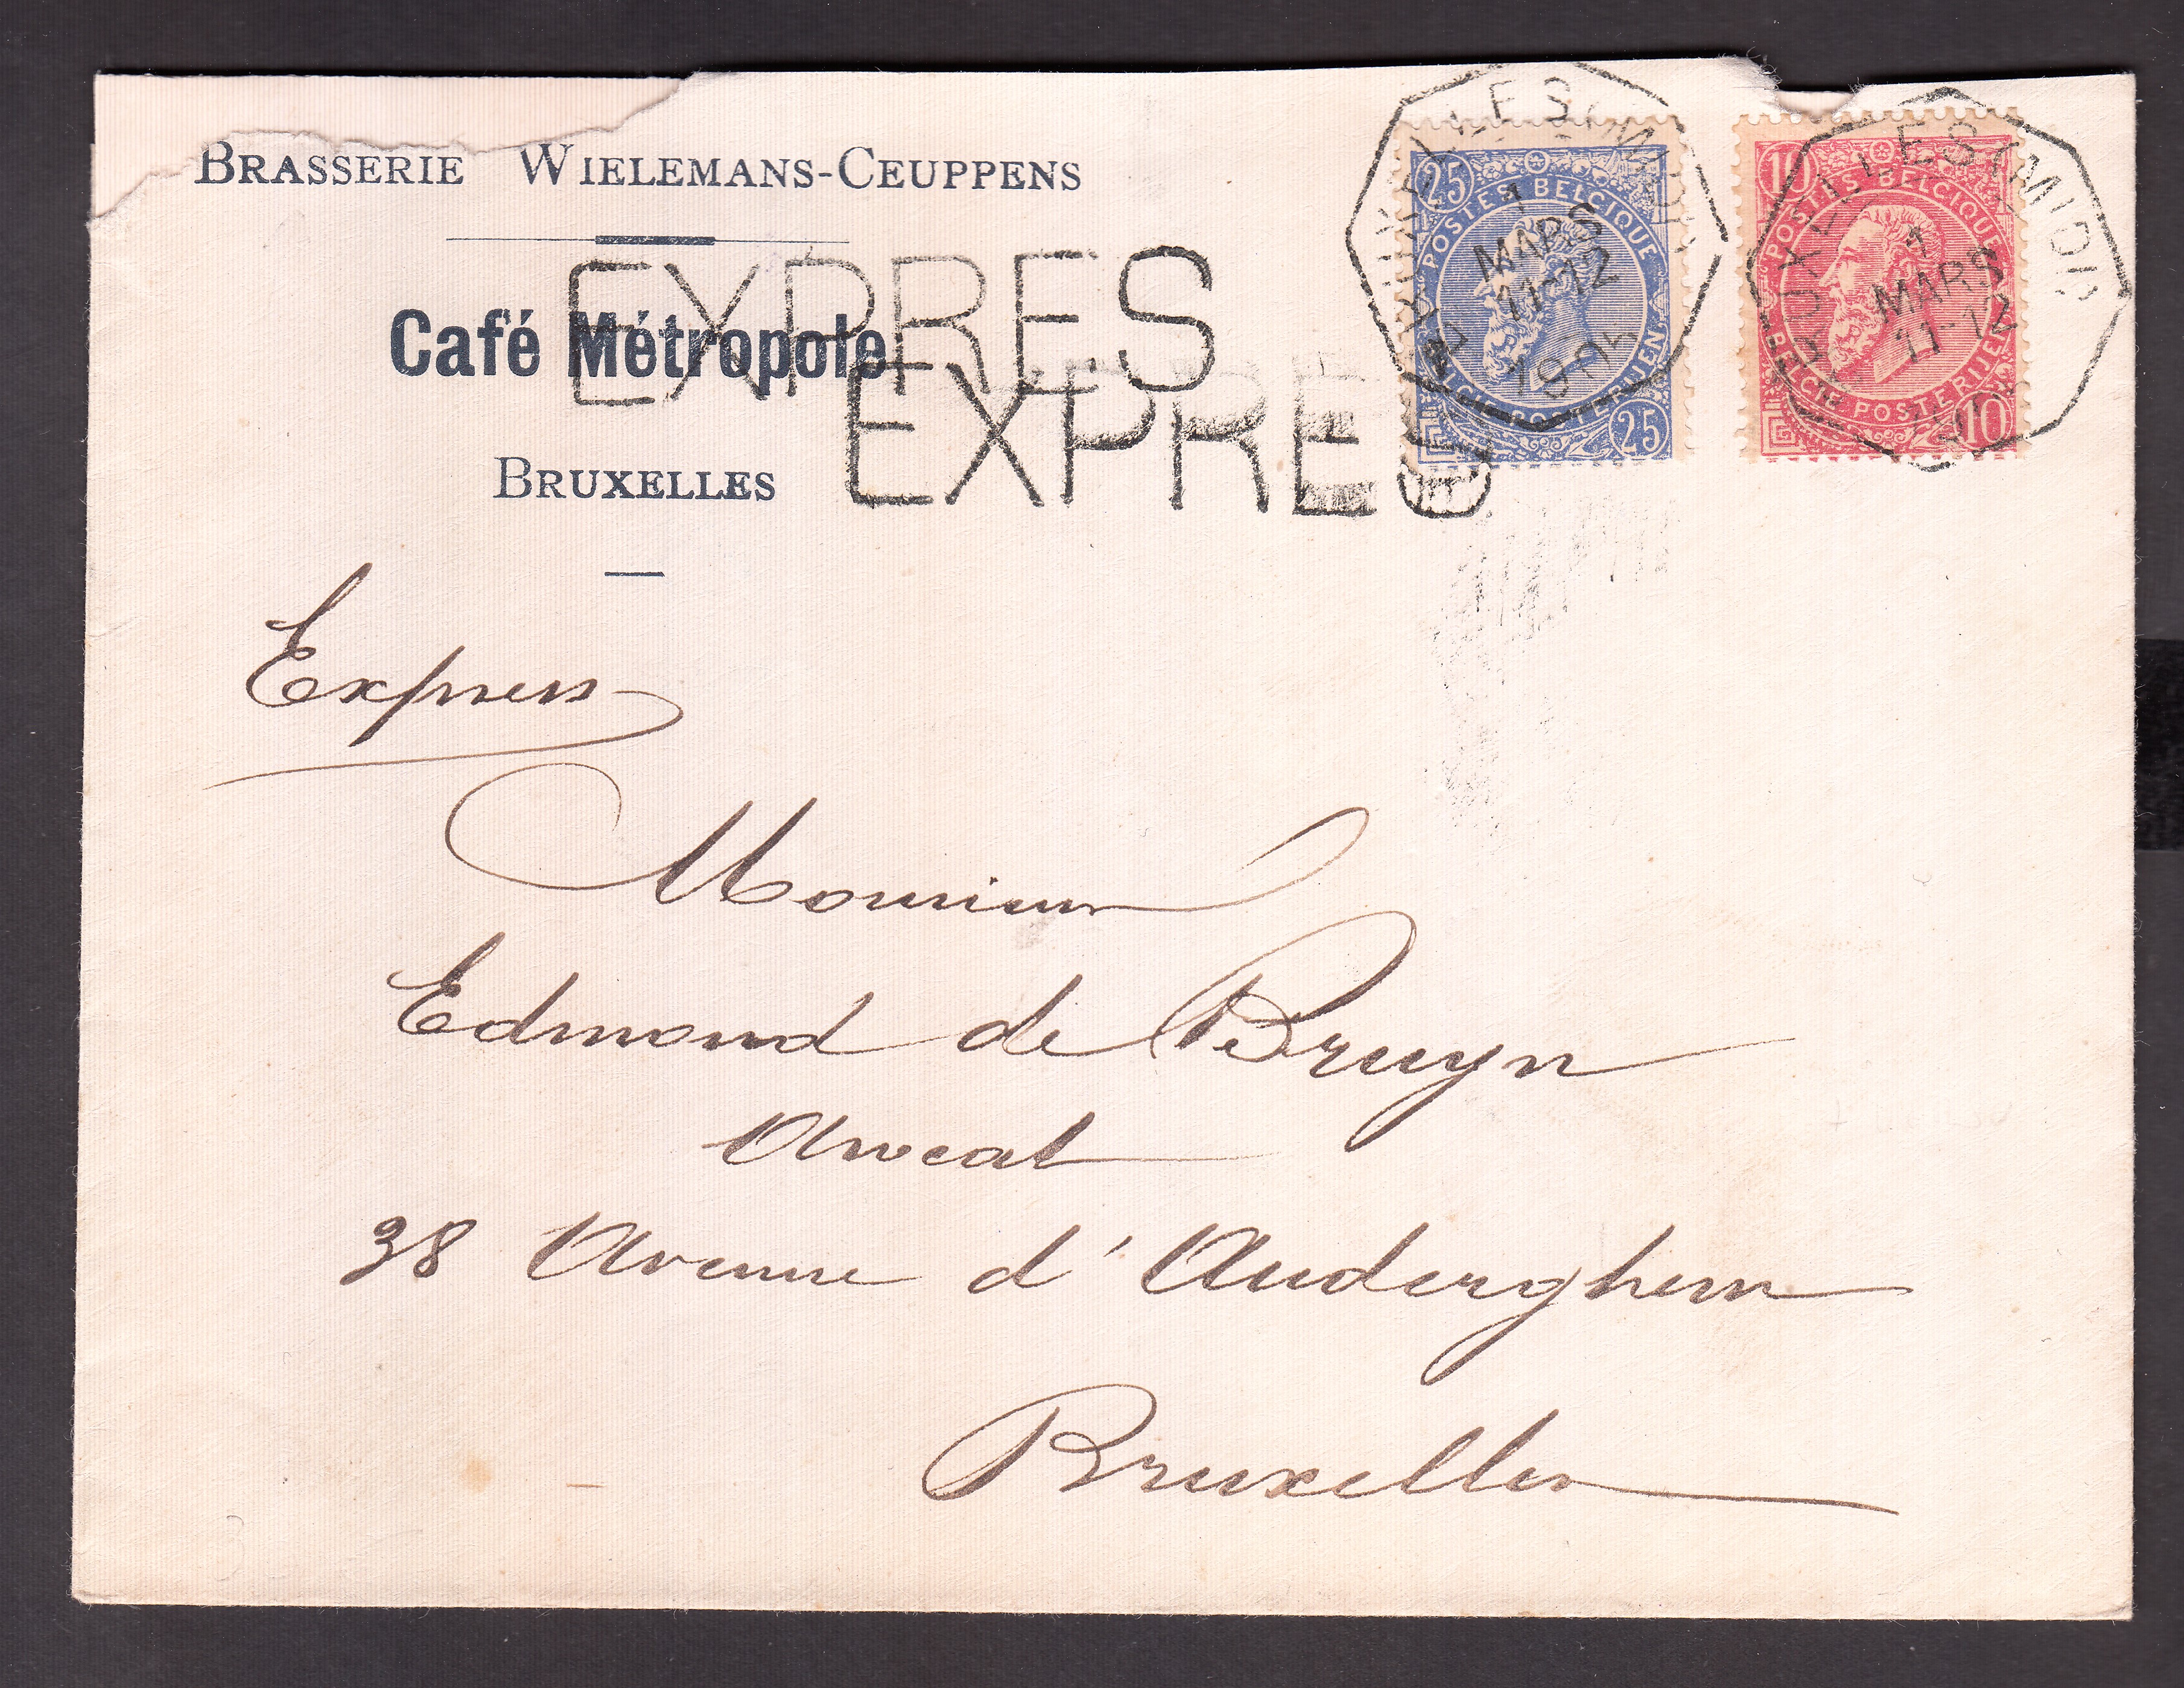 BRASSERIE WIELEMANS-CEUPPENS
Café Métropole
BRUXELLES
EXPRES
EXPRES
25
POSTES BELGIQUE
BELGIE POSTERIJEN
25
BRUXELLES (MIDI)
1
MARS
11-12
10
POSTES BELGIQUE
BELGIE POSTERIJEN
10
BRUXELLES (MIDI)
1
MARS
11-12
Express
Monsieur
Edmond de Bruyn
Avocat
38 Avenue d'Auderghem
Bruxelles